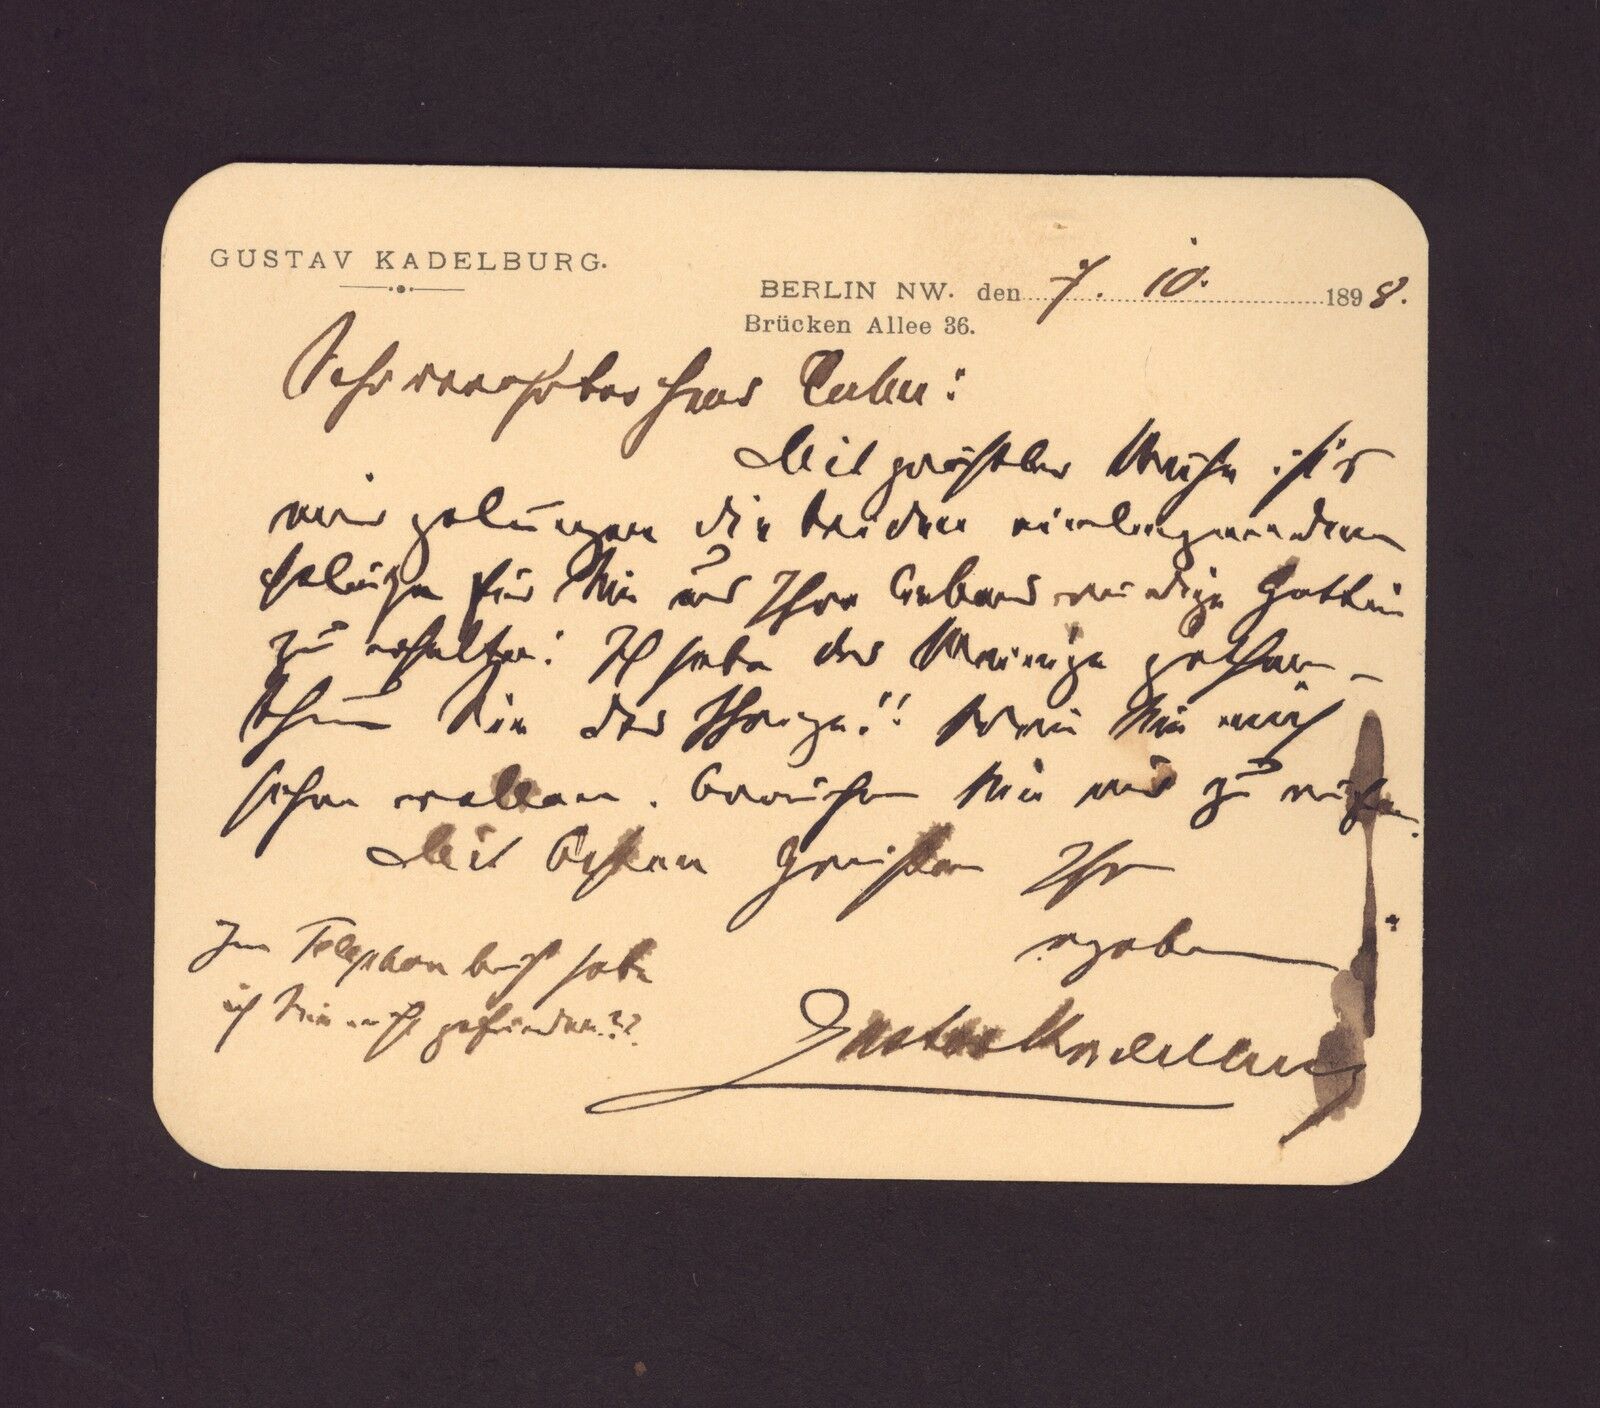 GUSTAV KADELBURG.
BERLIN NW. den 7. 10. 1898.
Brücken Allee 36.
Sehr verehrter Herr
Mit größter Mühe ist's
mir gelungen die beiden einliegenden
für Sie und Ihre liebenswürdige Gattin
zu erhalten! Ich habe das Meinige gethan –
thun Sie das Ihrige!! Wenn Sie mich
sehen wollen, brauchen Sie nur zu
Mit besten Grüßen Ihr
ergebener
Gustav Kadelburg
Im Telephonbuch habe
ich Sie nicht gefunden??